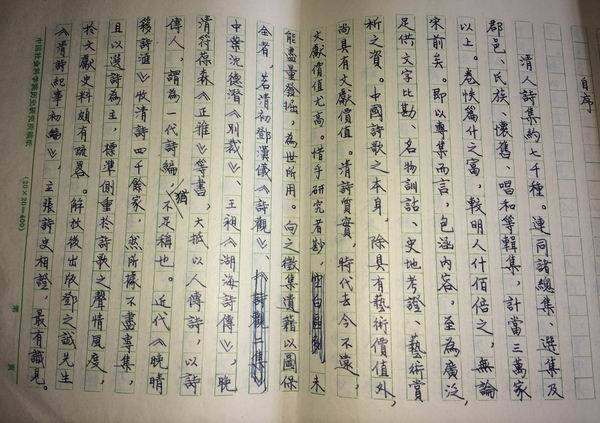 自序
清人詩集約七千種。連同諸總集、選集及
郡邑、民族、懷舊、唱和等輯集，計當三萬家
以上。卷帙篇什之富，較明人什佰倍之，無論
宋前矣。即以專集而言，包涵內容，至為廣泛，
足供文字比勘、名物訓詁、史地考證、藝術賞
析之資。中國詩歌之本身，除具有藝術價值外，
尚具有文獻價值。清詩質實，時代去今不遠，
文獻價值尤高。惜乎研究者尠，未
能盡量發掘，為世所用。向之徵集遺籍以圖保
全者，若清初鄧漢儀《詩觀》、《詩觀二集》，
中葉沈德潛《別裁》、王昶《湖海詩傳》，晚
清符葆森《正雅》等書，大抵以人傳詩，以詩
傳人，謂為一代詩編，猶不足稱也。近代《晚晴
簃詩滙》收清詩四千餘家，然所據不盡專集，
且以選詩為主，標準側重於詩歌之聲情風度，
於文獻史料頗有疏略。解放後出版鄧之誠先生
《清詩紀事初編》，主張詩史相證，最有識見。
中國社會科學院歷史研究所稿紙
(20×20=400)
第 頁